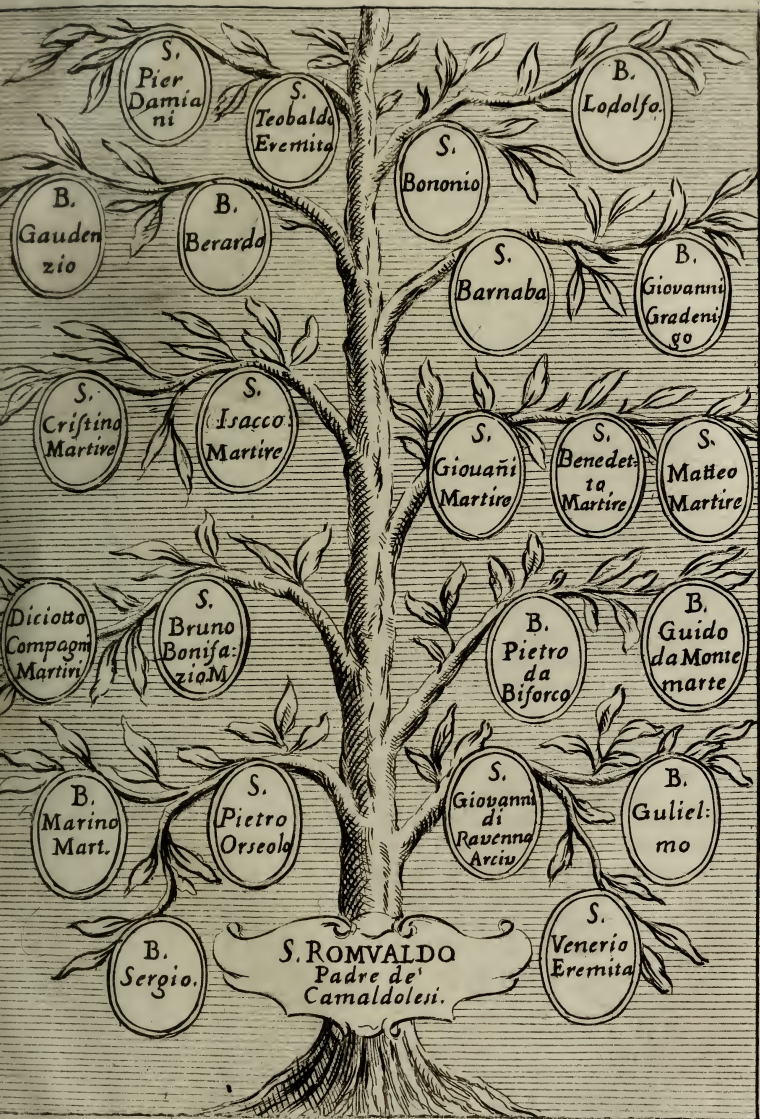 S.
Pier
Damia
ni
S.
Teobaldo
Eremita
B.
Lodolfo.
S.
Bononio
B.
Gauden
zio
B.
Berardo
S.
Barnaba
B.
Giovanni
Gradeni
go
S.
Cristino
Martire
S.
Isacco
Martire
S.
Giouañi
Martire
S.
Benedet:
to
Martire
S.
Matteo
Martire
Diciotto
Compagni
Martiri
S.
Bruno
Bonifa:
zio.M
B.
Pietro
da
Biforco
B.
Guido
da Monte
marte
B.
Marino
Mart.
S.
Pietro
Orseolo
S.
Giovanni
di
Rauenna
Arciv
B.
Guliel:
mo
B.
Sergio.
S. ROMVALDO
Padre de'
Camaldolesi.
S.
Venerio
Eremita